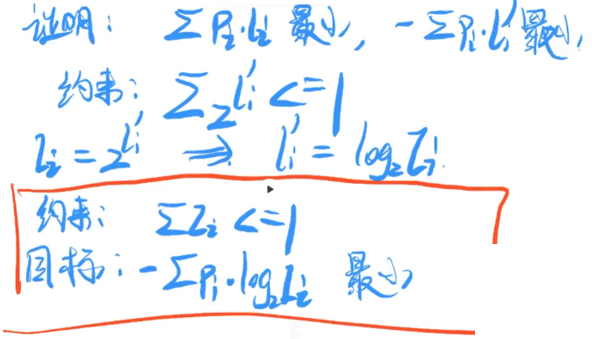 证明: Σ Pi·Li 最小, - Σ Pi·Li' 最小,
约束: Σ 2^Li' <= 1
Ii = 2^Li' => Li' = log₂Ii
约束: ΣIi <= 1
目标: - ΣPi·log₂Ii 最小